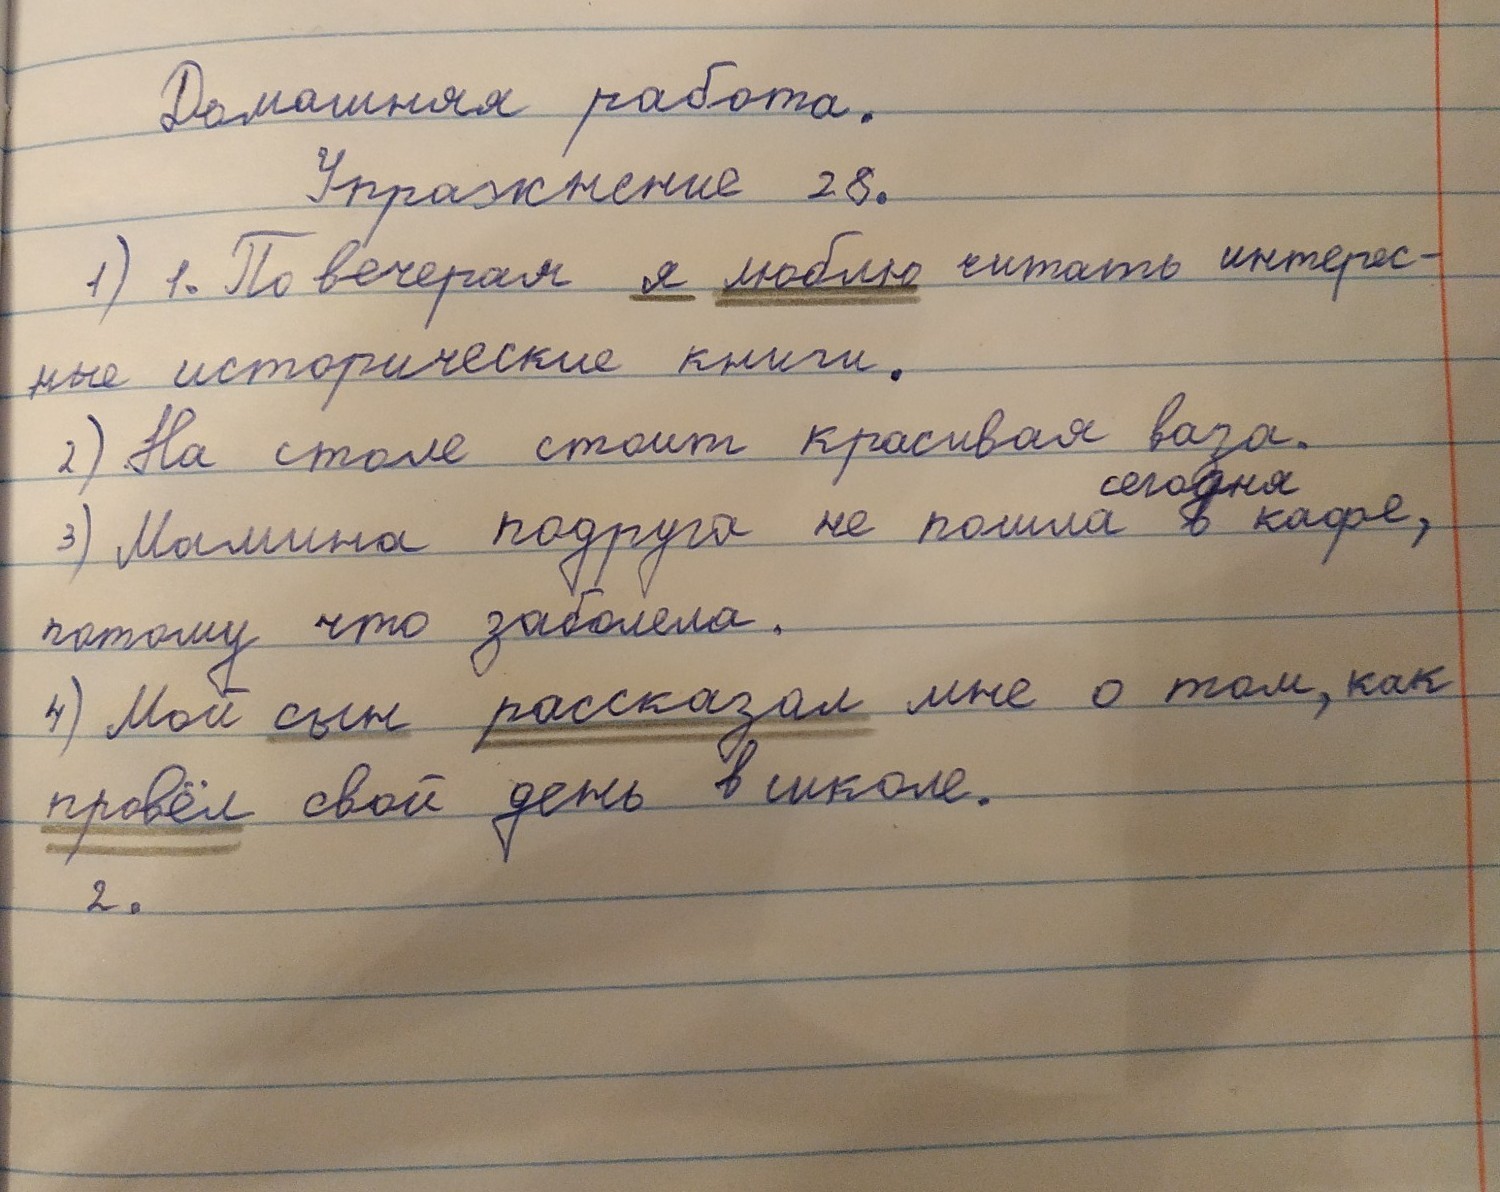 Домашняя работа.
Упражнение 28.
1) 1. По вечерам я люблю читать интерес-
ные исторические книги.
2) На столе стоит красивая ваза.
сегодня
3) Мамина подруга не пошла в кафе,
потому что заболела.
4) Мой сын рассказал мне о том, как
провёл свой день в школе.
2.